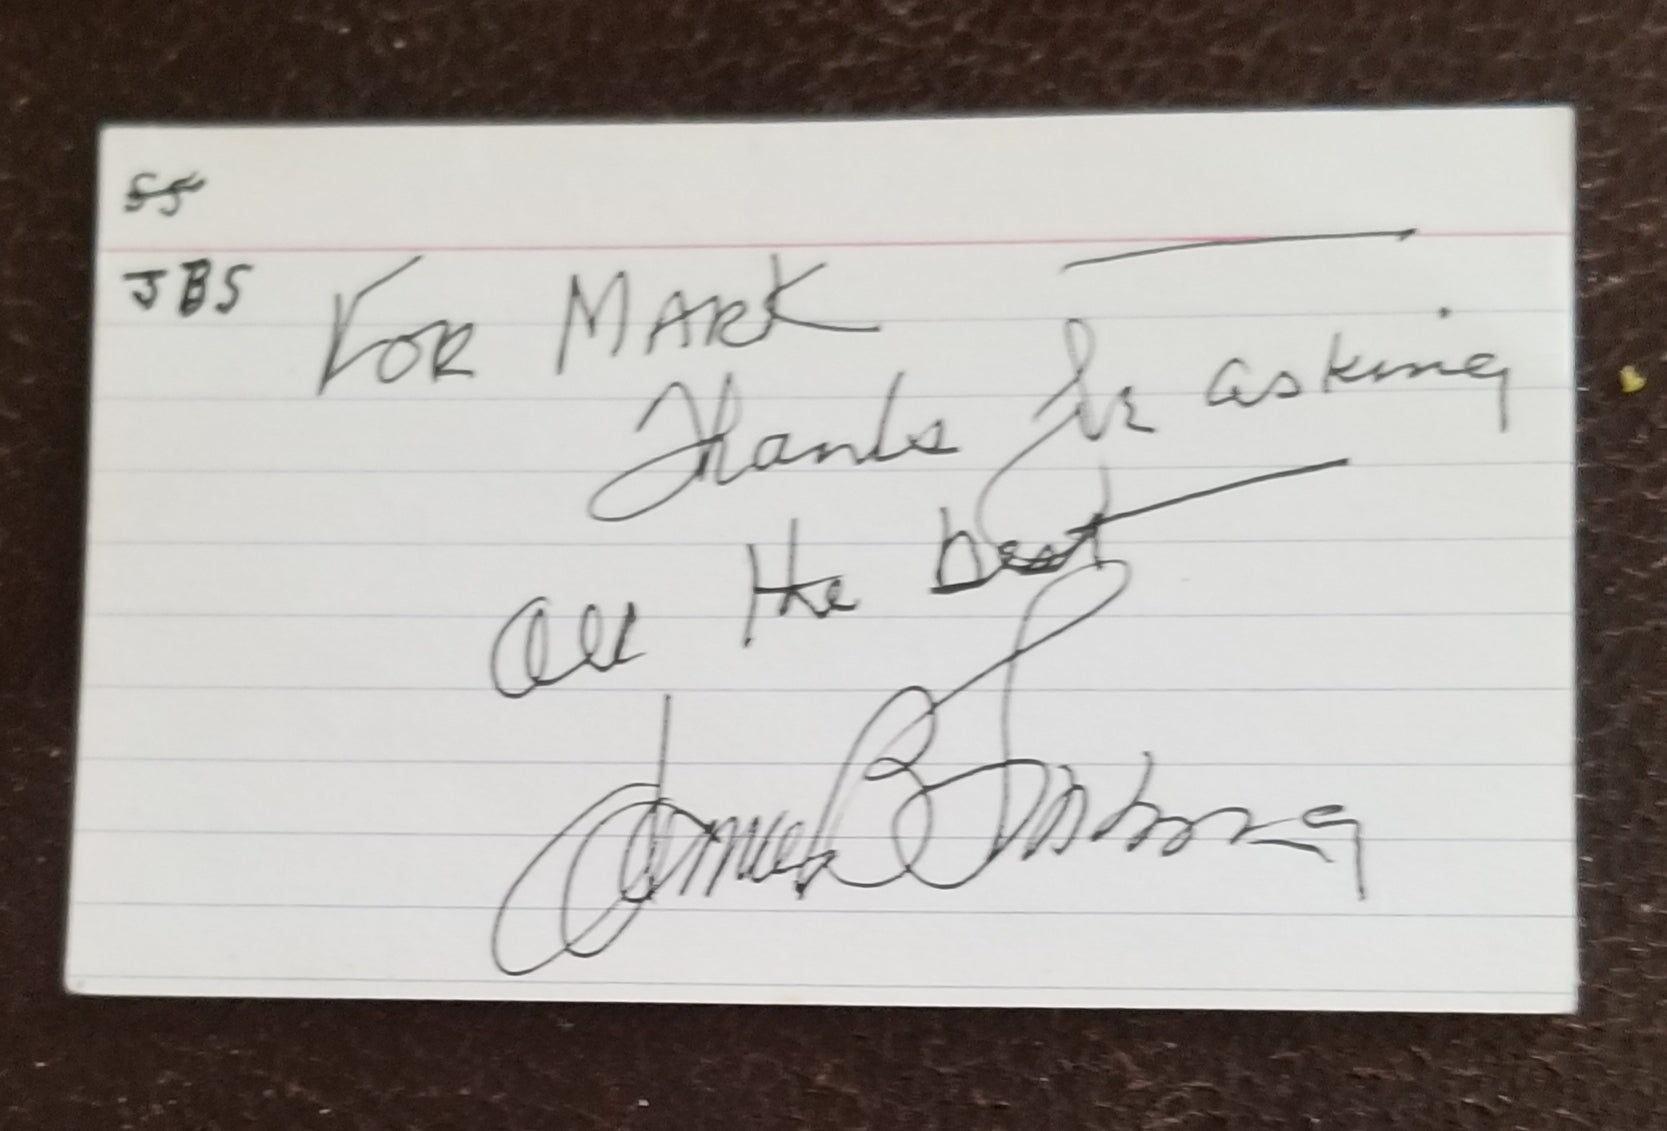 SS
JBS
FOR MARK
Thanks for asking
All the best
James B